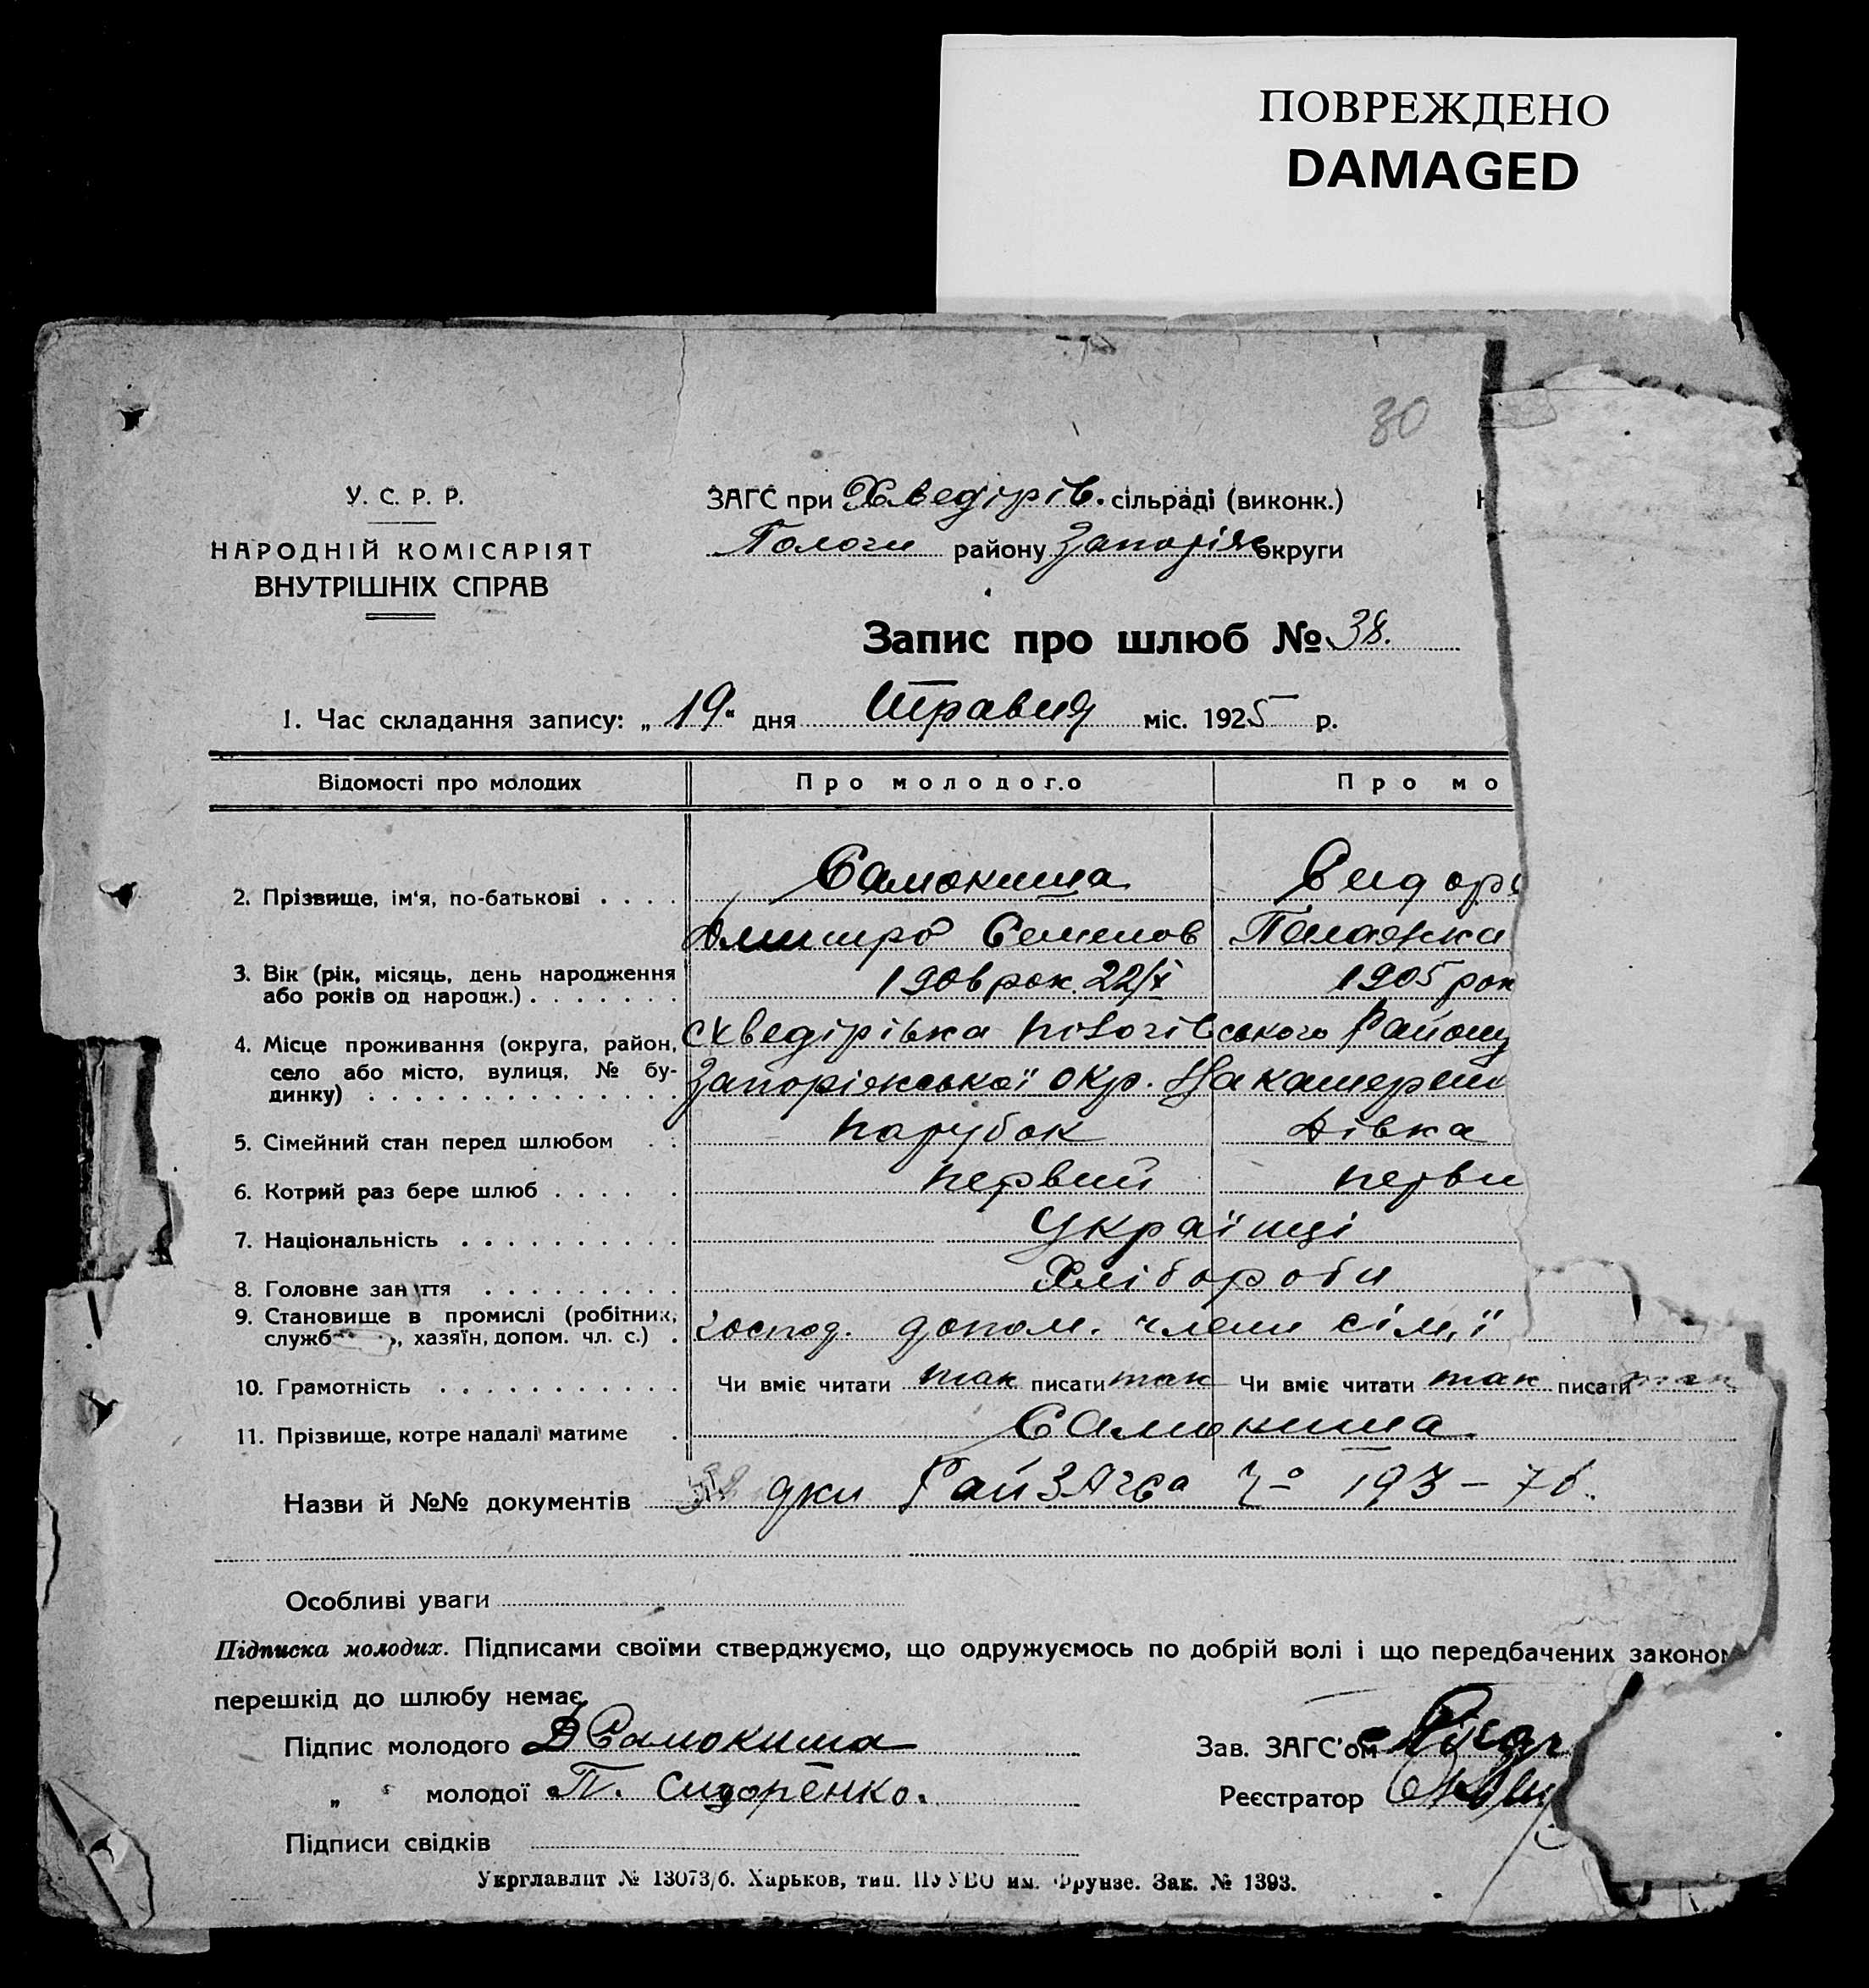 ПОВРЕЖДЕНО
DAMAGED
30
У. С. Р. Р.
НАРОДНІЙ КОМІСАРІЯТ
ВНУТРІШНІХ СПРАВ
ЗАГС при Хведірів. сільраді (виконк.)
Пологи району Запоріж округи
Запис про шлюб № 38.
1. Час складання запису: „ 19 “ дня Травня міс. 1925 р.
Відомості про молодих Про молодого Про мо
2. Прізвище, ім'я, по-батькові . . . . Самокиша Сидор
Дмитро Семенов Палажка
3. Вік (рік, місяць, день народження
або років од народж.) . . . . . . . 1906 рок. 22/X 1905 рок
4. Місце проживання (округа, район, Хведірівка Пологівського Району
село або місто, вулиця, № бу- Запоріжської окр.
динку) . . . . . . . . . . . . . . .
5. Сімейний стан перед шлюбом . . парубок дівка
6. Котрий раз бере шлюб . . . . . первий перви
7. Національність . . . . . . . . . . Українці
8. Головне заняття . . . . . . . . . Хлібороби
9. Становище в промислі (робітник,
служб , хазяїн, допом. чл. с.) . господ. допом. члени сім,ї
10. Грамотність . . . . . . . . . . . Чи вміє читати так писати так Чи вміє читати так писати так
11. Прізвище, котре надалі матиме . Самокиша.
Назви й №№ документів дки РайЗАГСа 193 – 76.
Особливі уваги
Підписка молодих. Підписами своїми стверджуємо, що одружуємось по добрій волі і що передбачених законом
перешкід до шлюбу немає.
Підпис молодого Д Самокиша Зав. ЗАГС'ом
„ молодої П. Сидоренко. Реєстратор
Підписи свідків
Укрглавліт № 13073/б. Харьков, тип. ПУУВО им. Фрунзе. Зак. № 1393.